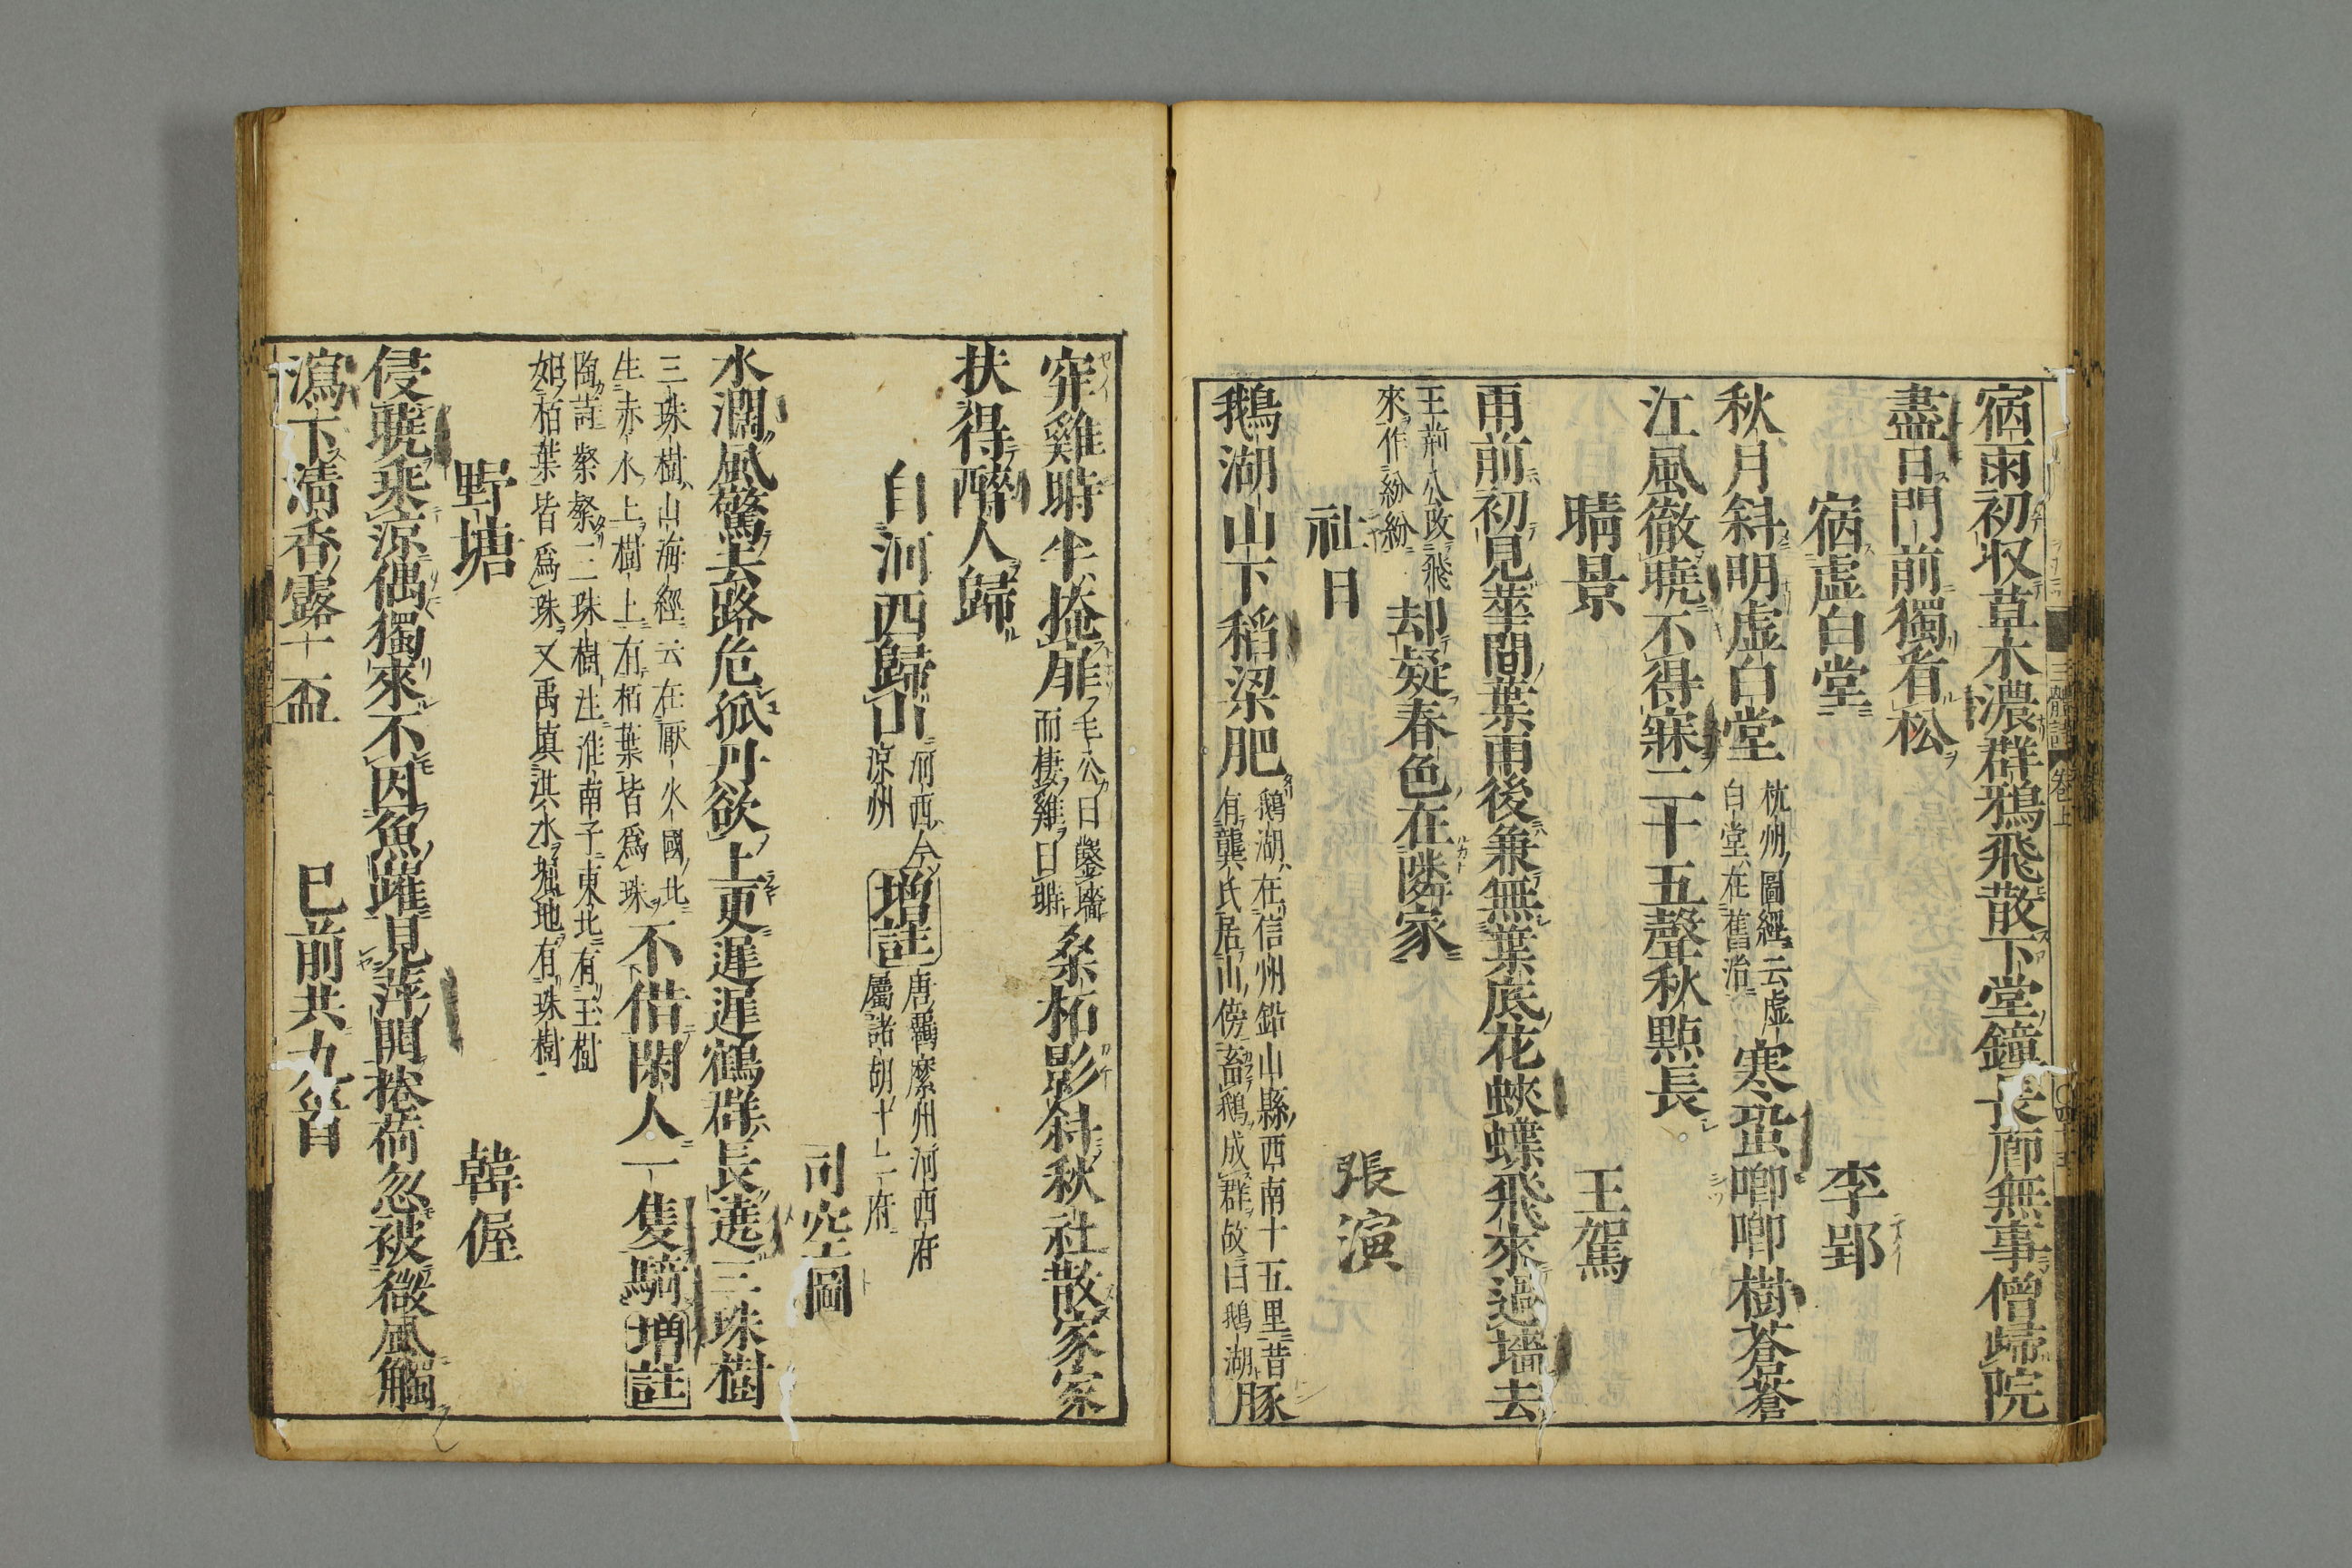 宿雨初収草木濃群鴉飛散下堂鐘長廊無事僧歸院
盡日門前獨看松
宿虚白堂 李郢
秋月斜明虚白堂 杭州圖經云虚白堂在舊治 寒蛩喞喞樹蒼蒼
江風徹曉不得寐二十五聲秋點長
晴景 王駕
雨前初見華間葉雨後兼無葉底花蛺蝶飛來過墻去
王荊公改飛來作紛紛 却疑春色在隣家
社日 張演
鵝湖山下稻梁肥 鵝湖在信州鉛山縣西南十五里昔有龔氏居山傍畜鵝成群故曰鵝湖 豚
穽雞塒半掩扉 毛公曰鑿墻而棲雞曰塒 桑柘影斜秋社散家家
扶得醉人歸
自河西歸山 河西今涼州 増註 唐羈縻州河西府屬諸胡十二府
司空圖
水濶風驚去路危孤舟欲上更遲遲鶴群長遶三珠樹
三珠樹山海經云在厭火國北生赤水上樹上有栢葉皆爲珠 不借閑人一隻騎 増註
陶詩粲粲三珠樹注淮南子東北有玉樹
如栢葉皆爲珠又禹塡洪水堀地有珠樹
野塘 韓偓
侵曉乘涼偶獨來不因魚躍見萍開捲荷忽被微風觸
瀉下清香露一盃 已前共九首
三體詩 卷上